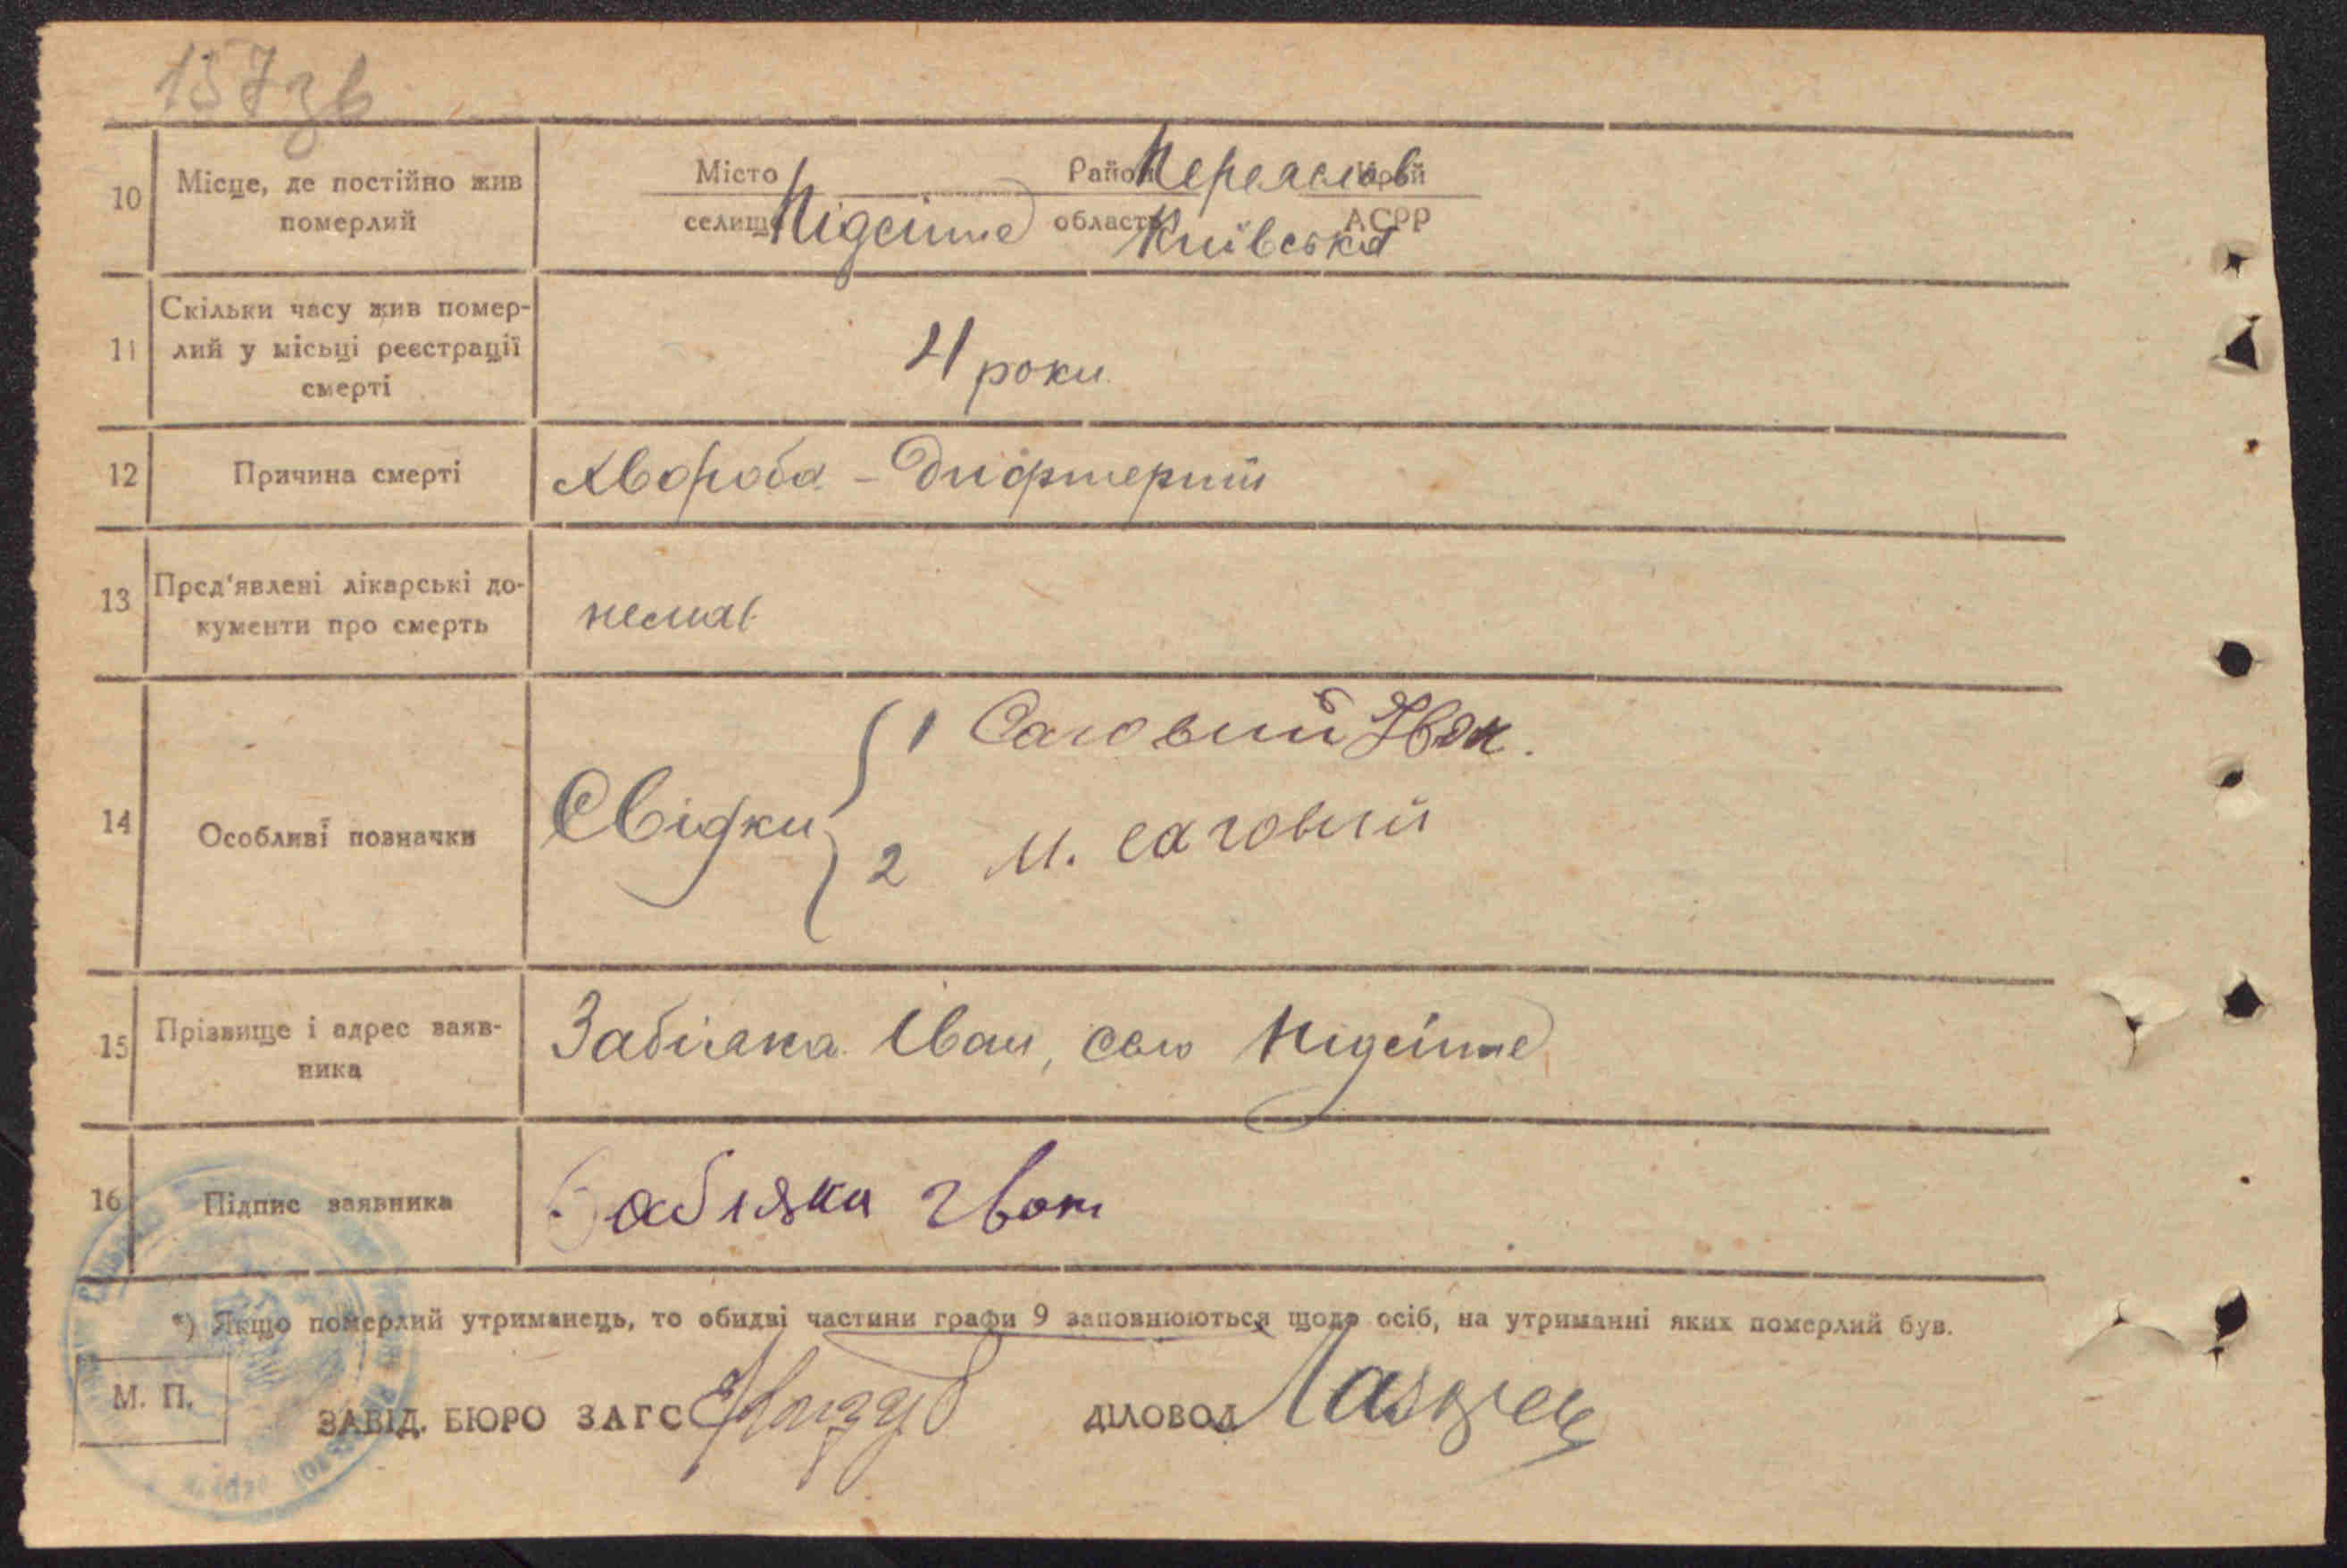 137зв
10 Місце, де постійно жив померлий
Місто Район Переяслов Край
селище Підсінне область Київська АСРР
11 Скільки часу жив помер-
лий у місьці реєстрації
смерті
4 роки
12 Причина смерті Хвороба - Дифтерит
13 Пред'явлені лікарські до-
кументи про смерть
немає
14 Особливі позначки
Свідки
1 Саговий Іван.
2 М. Саговий
15 Прізвище і адрес заяв-
ника
Забіяка Іван, село Підсінне
16 Підпис заявника Забіяка Іван
*) Якщо померлий утриманець, то обидві частини графи 9 заповнюються щодо осіб, на утриманні яких померлий був.
М. П.
ЗАВІД. БЮРО ЗАГС ДІЛОВОД